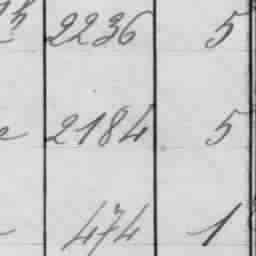 2236 5
2184 5
474 1